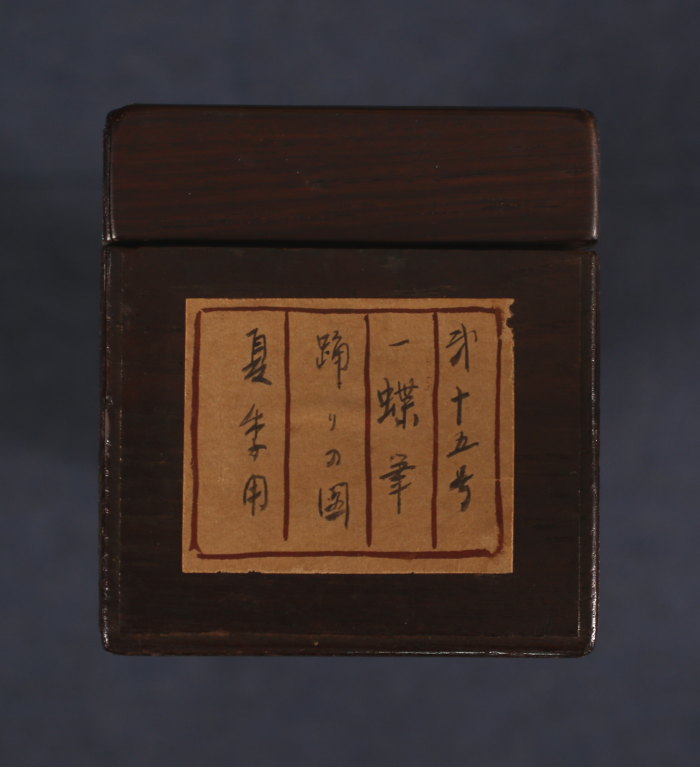 弐十五号
一蝶筆
踊りの圖
夏季用